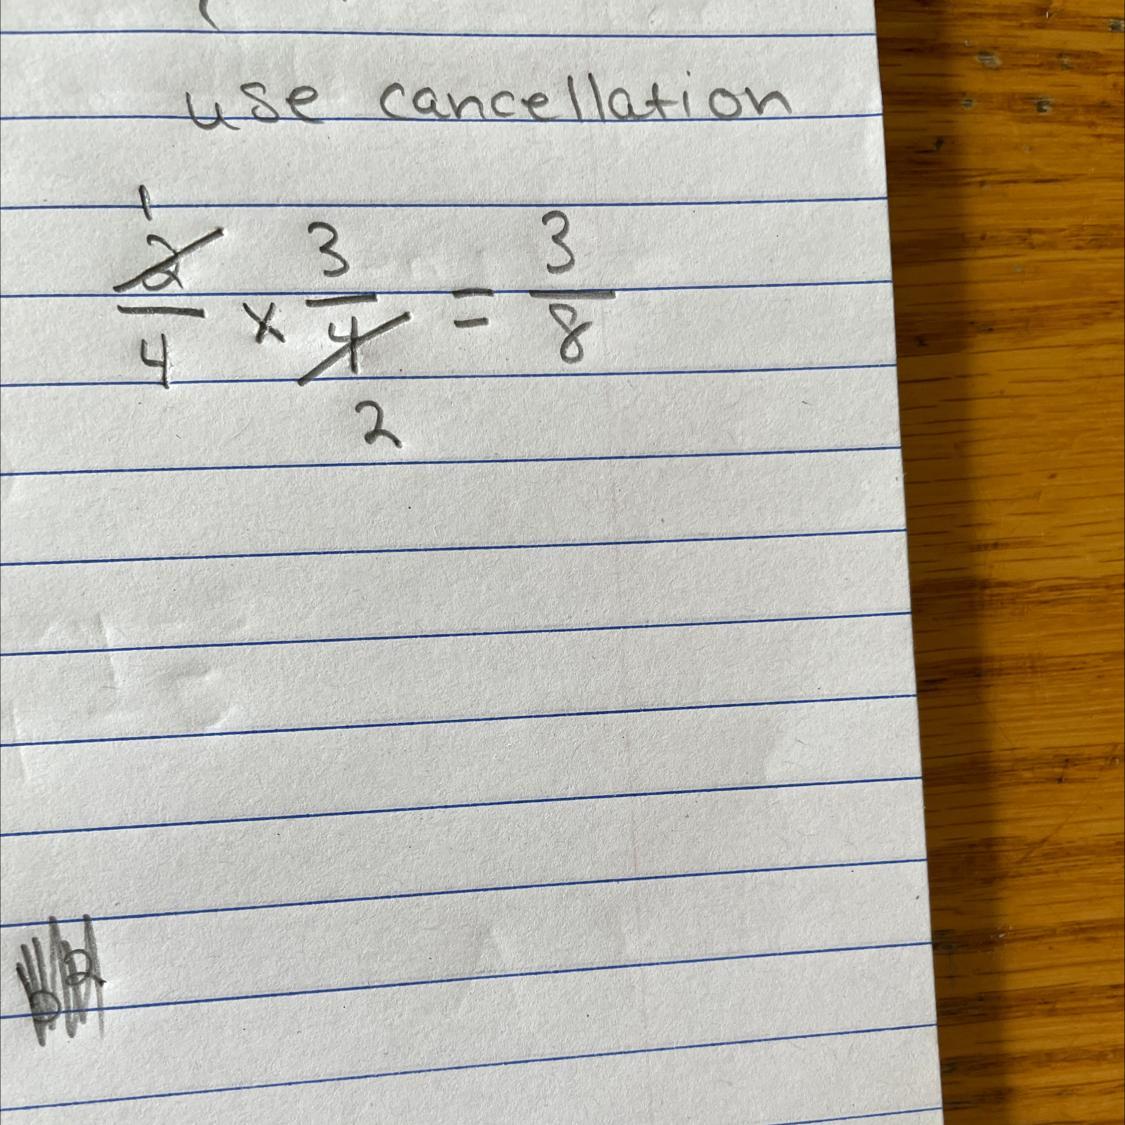 use cancellation
1
2/4 x 3/4 = 3/8
2